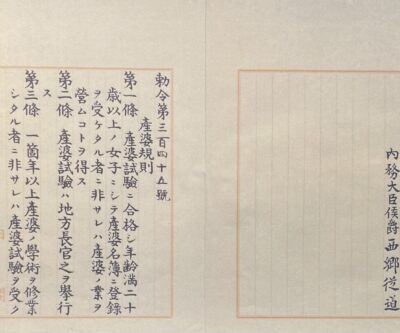 内務大臣侯爵西郷從道
勅令第三百四十五號
産婆規則
第一條 産婆試驗ニ合格シ年齡滿二十
歳以上ノ女子ニシテ産婆名簿ニ登錄
ヲ受ケタル者ニ非サレハ産婆ノ業ヲ
營ムコトヲ得ス
第二條 産婆試驗ハ地方長官之ヲ擧行
ス
第三條 一箇年以上産婆ノ學術ヲ修業
シタル者ニ非サレハ産婆試驗ヲ受ク